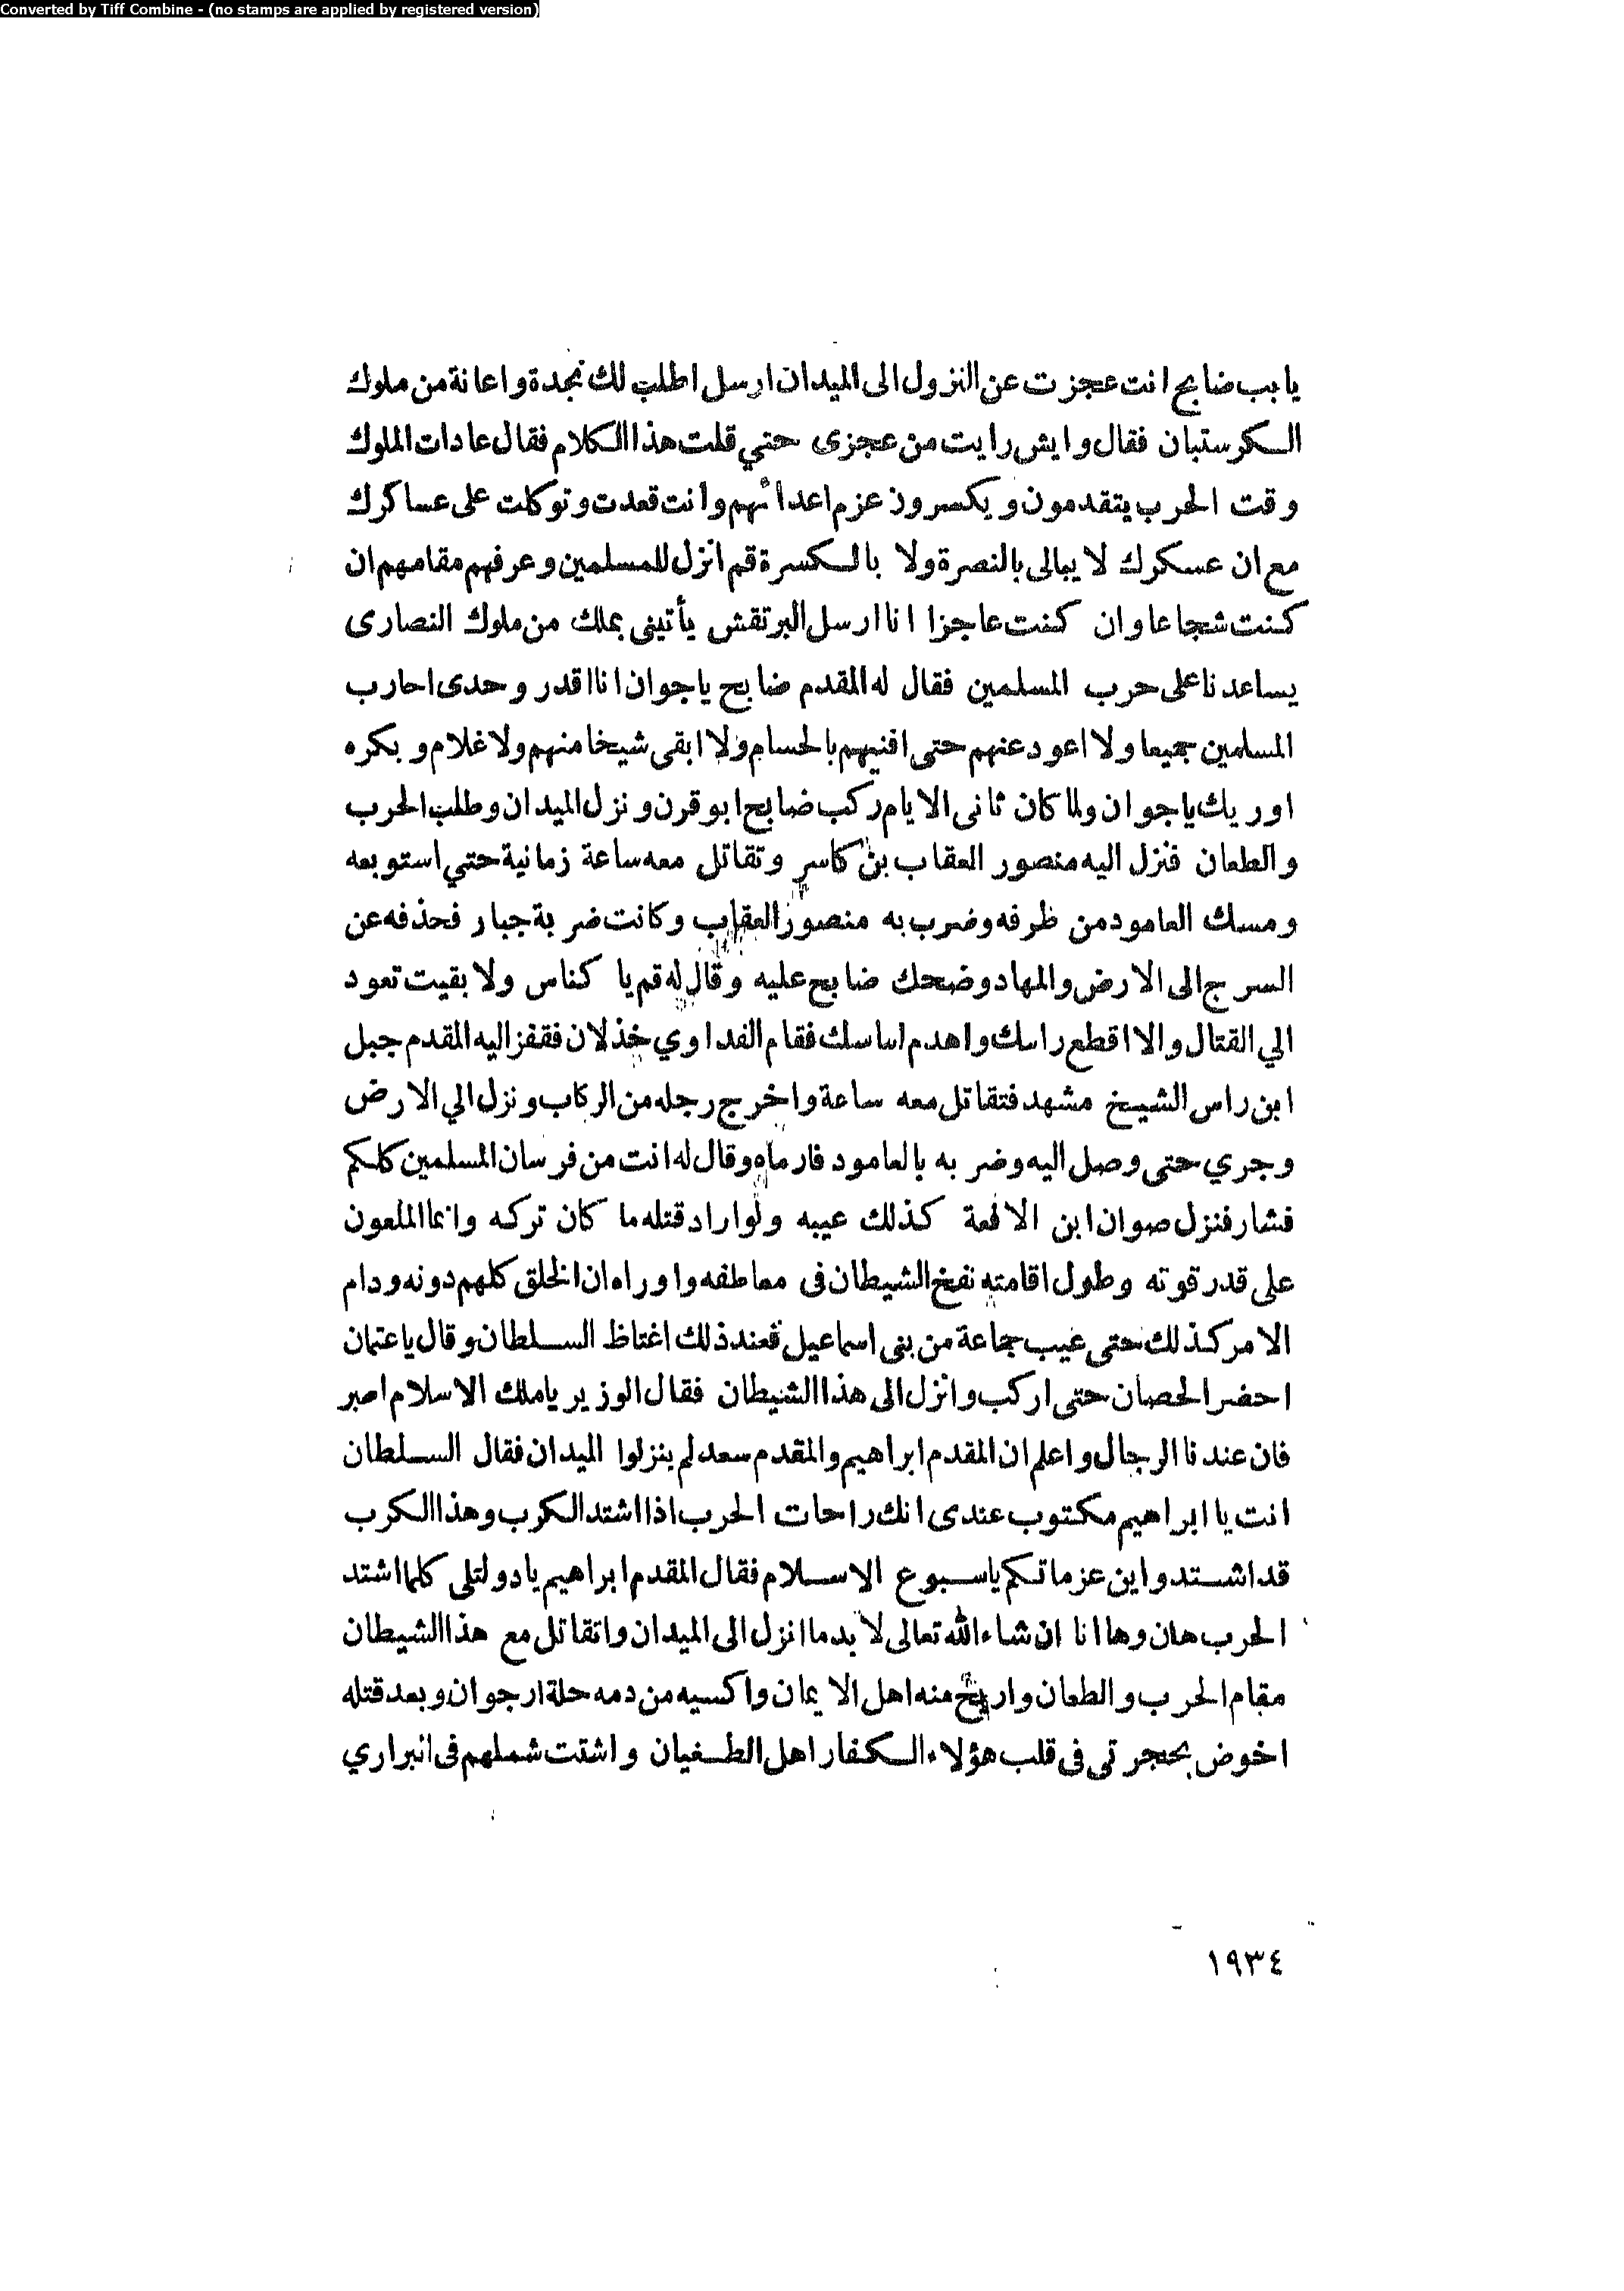 Converted by Tiff Combine - (no stamps are applied by registered version)
يابب ضابح انت عجزت عن النزول الى الميدان ارسل اطلب لك نجدة واعانة من ملوك
الكرستيان فقال وايش رايت من عجزى حتي قلت هذا الكلام فقال عادات الملوك
وقت الحرب يتقدمون ويكسرون عزم اعدائهم وانت قعدت وتوكلت على عساكرك
مع ان عسكرك لا يبالى بالنصرة ولا بالكسرة قم انزل للمسلمين وعرفهم مقامهم ان
كنت شجاعا وان كنت عاجزا انا ارسل البرتقش يأتينى بملك من ملوك النصارى
يساعدنا على حرب المسلمين فقال له المقدم ضابح ياجوان انا اقدر وحدى احارب
المسلمين جميعا ولا اعود عنهم حتى افنيهم بالحسام ولا ابقى شيخا منهم ولا غلام وبكره
اوريك ياجوان ولما كان ثانى الايام ركب ضابح ابو قرن ونزل الميدان وطلب الحرب
والطعان فنزل اليه منصور العقاب بن كاسر وتقاتل معه ساعة زمانية حتي استوبعه
ومسك العامود من ظرفه وضرب به منصور العقاب وكانت ضربة جبار فحذفه عن
السرج الى الارض والمهاد وضحك ضابح عليه وقال له قم يا كناس ولا بقيت تعود
الي القتال والا اقطع راسك واهدم اساسك فقام الفداوي خذلان فقفز اليه المقدم جبل
ابن راس الشيخ مشهد فتقاتل معه ساعة واخرج رجله من الركاب ونزل الي الارض
وجري حتى وصل اليه وضربه بالعامود فارماه وقال له انت من فرسان المسلمين كلكم
فشار فنزل صوان ابن الافعة كذلك عيبه ولو اراد قتله ما كان تركه وانما الملعون
على قدر قوته وطول اقامته نفخ الشيطان فى معاطفه واوراه ان الخلق كلهم دونه ودام
الامر كذلك حتى عيب جماعة من بنى اسماعيل فعند ذلك اغتاظ السلطان وقال ياعتمان
احضر الحصان حتى اركب وانزل الى هذا الشيطان فقال الوزير ياملك الاسلام اصبر
فان عندنا الرجال واعلم ان المقدم ابراهيم والمقدم سعد لم ينزلوا الميدان فقال السلطان
انت يا ابراهيم مكتوب عندى انك راحات الحرب اذا اشتد الكرب وهذا الكرب
قد اشتد واين عزماتكم ياسبوع الاسلام فقال المقدم ابراهيم يادولتلى كلما اشتد
الحرب هان وها انا ان شاء الله تعالى لابد ما انزل الى الميدان واتقاتل مع هذا الشيطان
مقام الحرب والطعان واريح منه اهل الايمان واكسيه من دمه حلة ارجوان وبعد قتله
اخوض بحجرتى فى قلب هؤلاء الكفار اهل الطغيان واشتت شملهم فى انبراري
١٩٣٤